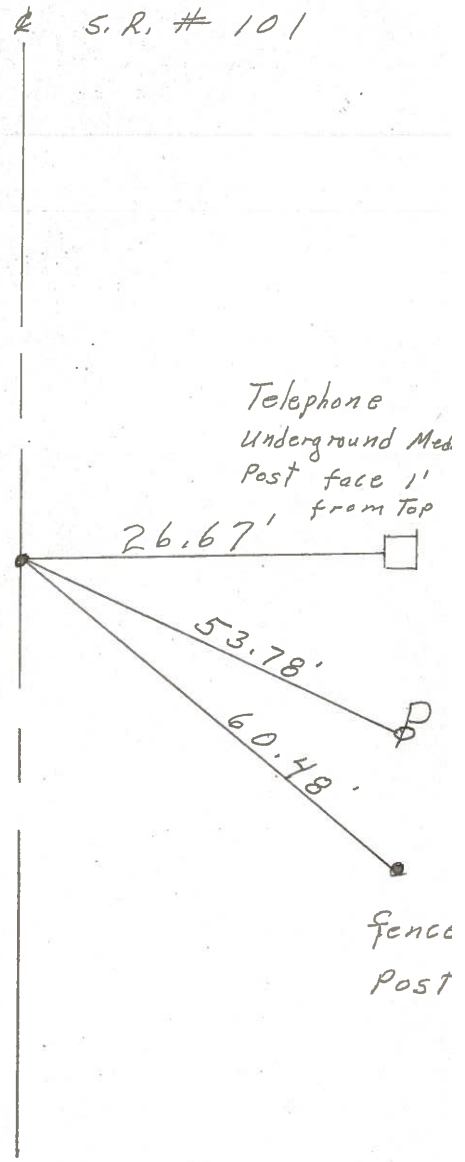 ℄ S.R. # 101
Telephone
Underground
Post face 1'
from Top
26.67'
53.78'
P
60.48'
fence
Post